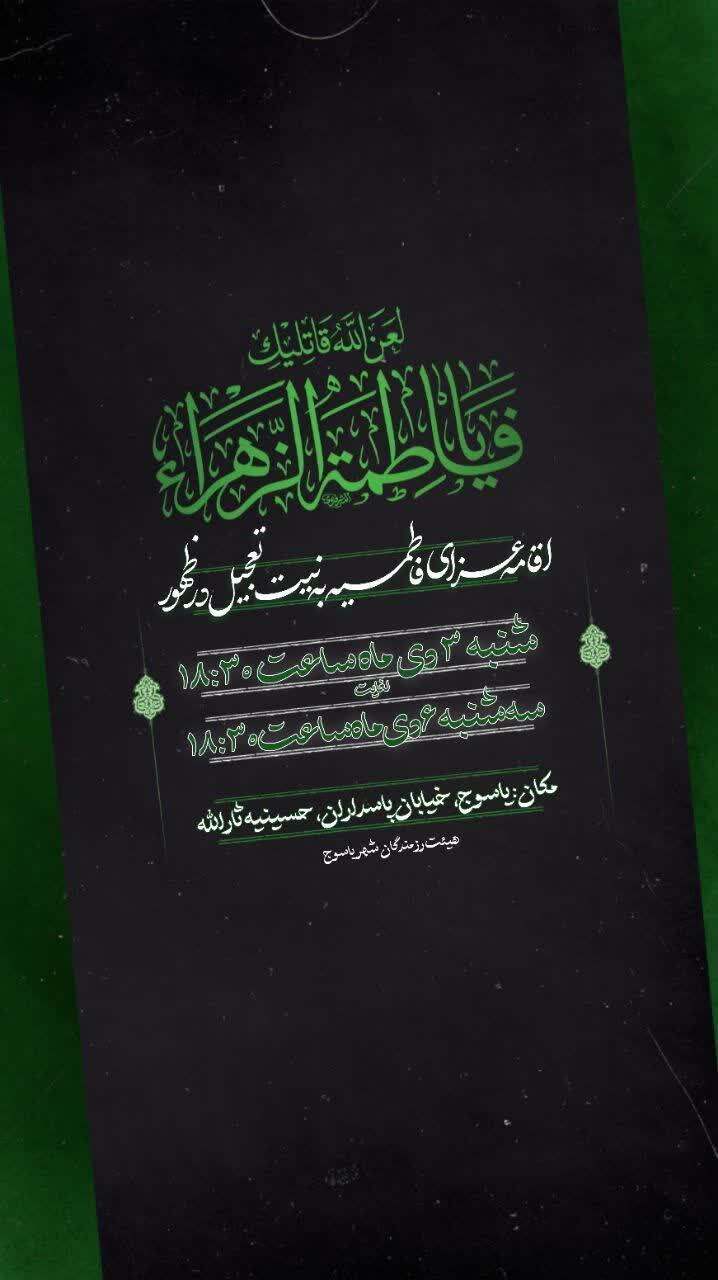 لَعَنَ اللهُ قَاتِلِيكِ
يَا فَاطِمَةُ الزَّهْرَاء
اقامه عزای فاطمیه به نیت تعجیل در ظهور
شنبه ۳ دی ماه ساعت ۱۸:۳۰
لغایت
سه شنبه ۶ دی ماه ساعت ۱۸:۳۰
مکان: یاسوج، خیابان پاسداران، حسینیه ثارالله
هیئت رزمندگان شهر یاسوج